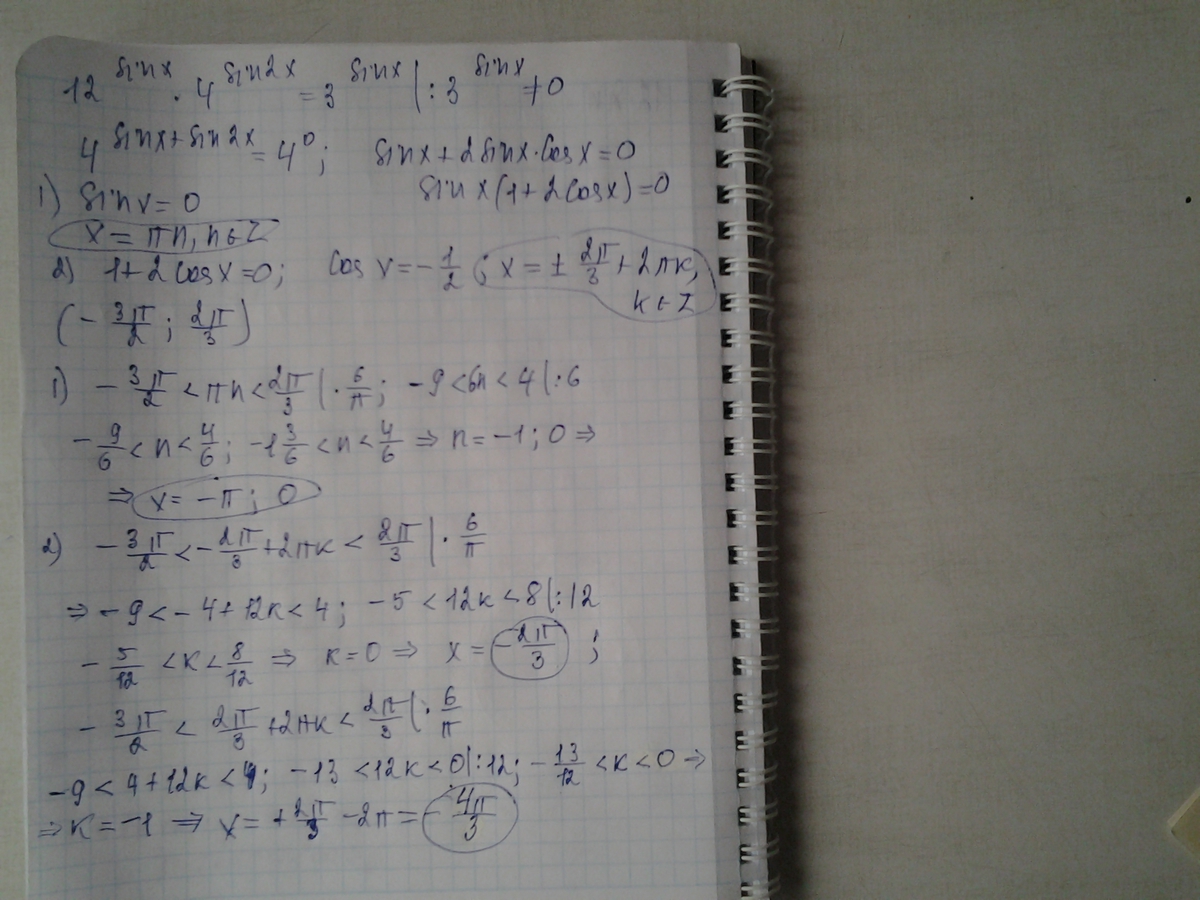 12^(sin x) · 4^(sin 2x) = 3^(sin x) | : 3^(sin x) ≠ 0
4^(sin x + sin 2x) = 4^0; sin x + 2 sin x · cos x = 0
1) sin x = 0 sin x (1 + 2 cos x) = 0
x = πn, n ∈ Z
2) 1 + 2 cos x = 0; cos x = -1/2; x = ± 2π/3 + 2πk,
k ∈ Z
(-3π/2; 2π/3)
1) -3π/2 < πn < 2π/3 | · 6/π; -9 < 6n < 4 | : 6
-9/6 < n < 4/6; -1 3/6 < n < 4/6 ⇒ n = -1; 0 ⇒
⇒ x = -π; 0
2) -3π/2 < -2π/3 + 2πk < 2π/3 | · 6/π
⇒ -9 < -4 + 12k < 4; -5 < 12k < 8 | : 12
-5/12 < k < 8/12 ⇒ k = 0 ⇒ x = -2π/3;
-3π/2 < 2π/3 + 2πk < 2π/3 | · 6/π
-9 < 4 + 12k < 4; -13 < 12k < 0 | : 12; -13/12 < k < 0 ⇒
⇒ k = -1 ⇒ x = +2π/3 - 2π = -4π/3